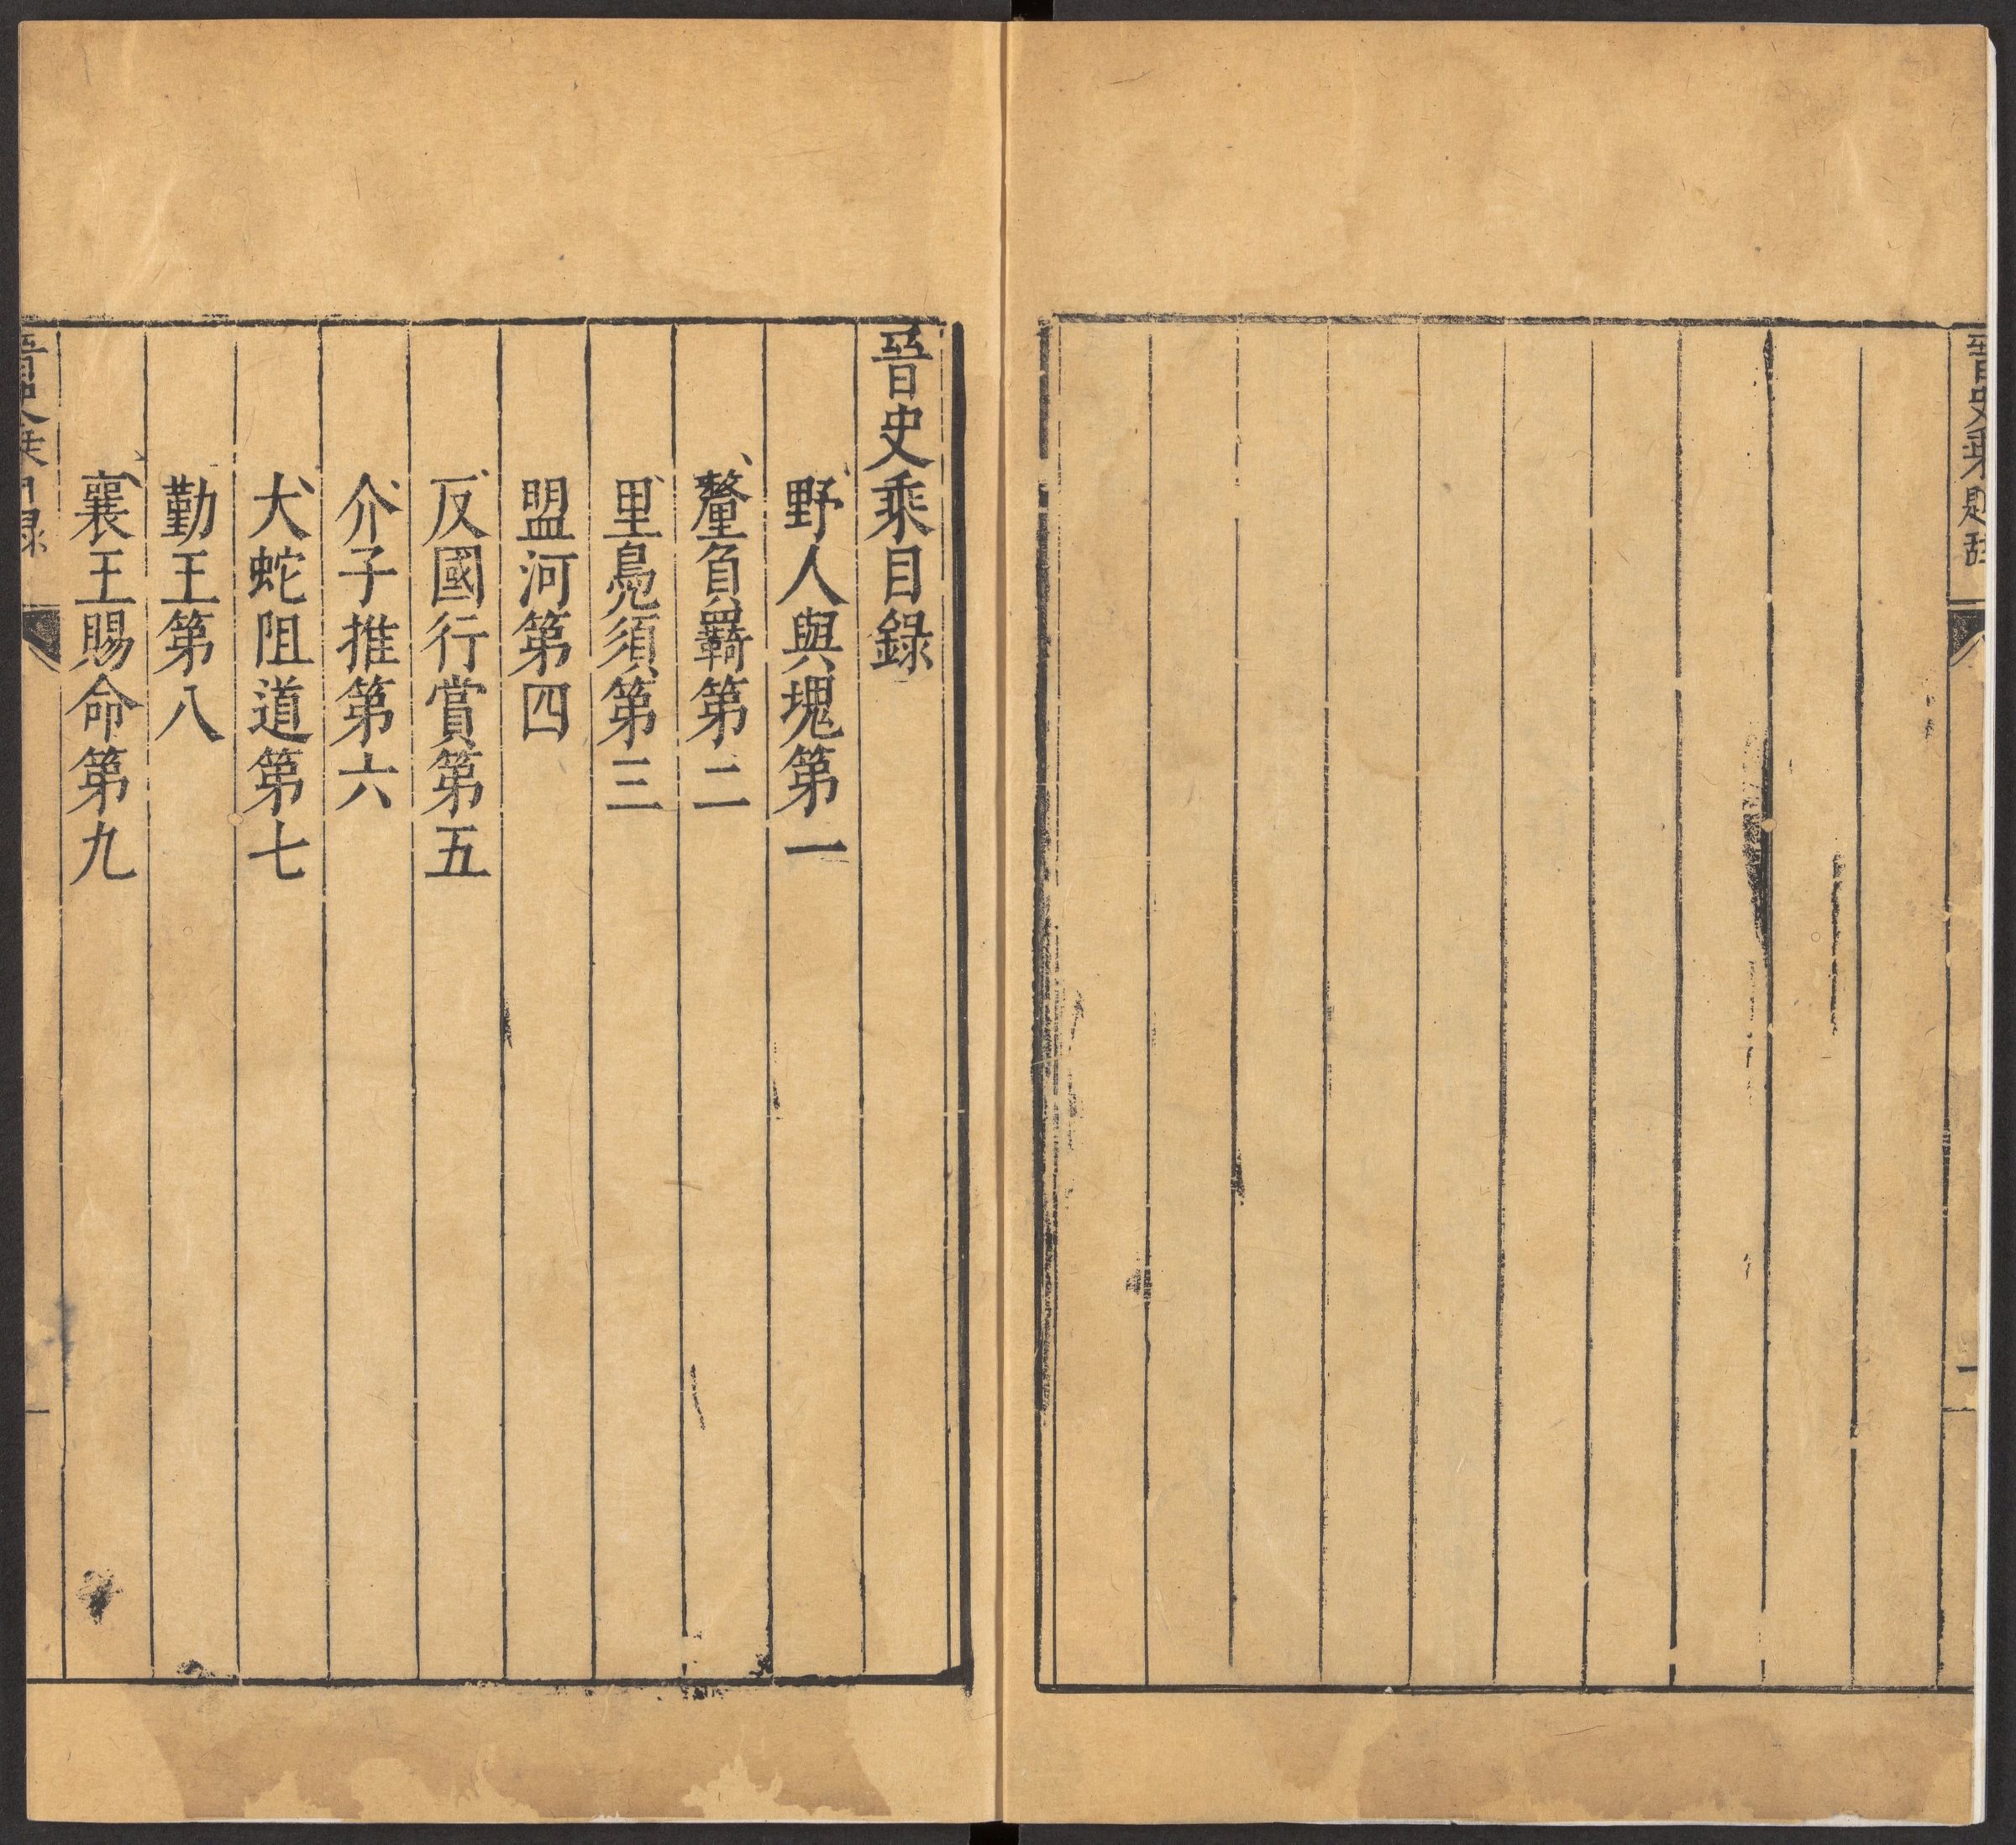 晉史乘題辭
一
晉史乘目錄
野人與塊第一
釐負羈第二
里鳧須第三
盟河第四
反國行賞第五
介子推第六
大蛇阻道第七
勤王第八
襄王賜命第九
晉史乘目錄
一